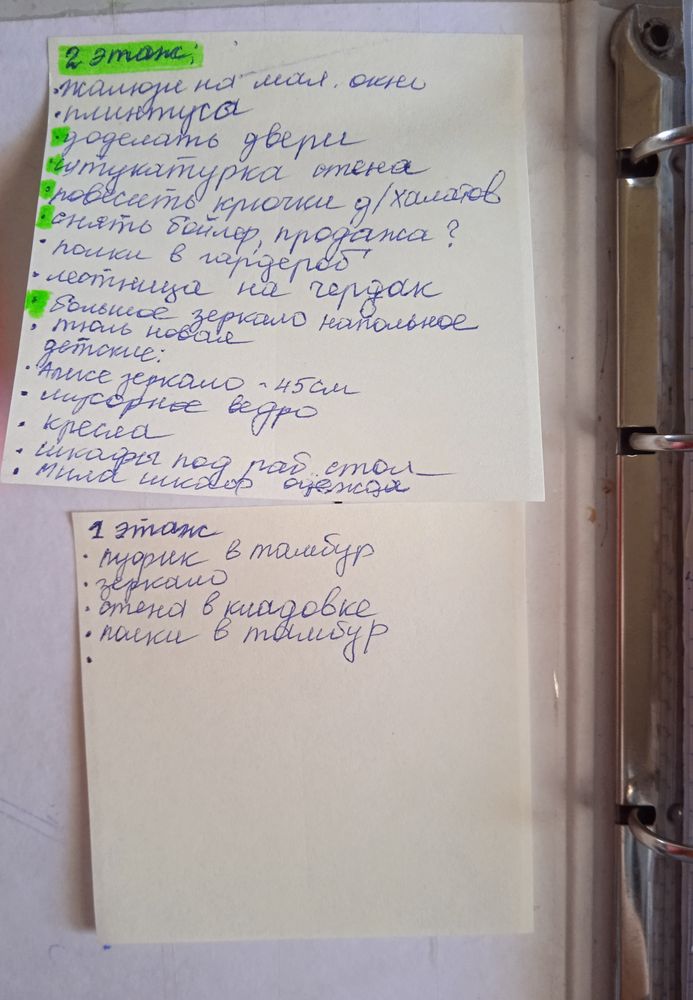 2 этаж:
• жалюзи на мал. окно
• плинтуса
• доделать двери
• штукатурка стена
• повесить крючки д/халатов
• снять бойлер, продажа?
• полки в гардероб
• лестница на чердак
• большое зеркало напольное
• тюль новая
детские:
• Алисе зеркало - 45 см
• мусорное ведро
• кресла
• шкафы под раб. стол
• Мила шкаф одежда
1 этаж
• пуфик в тамбур
• зеркало
• стена в кладовке
• полки в тамбур
•